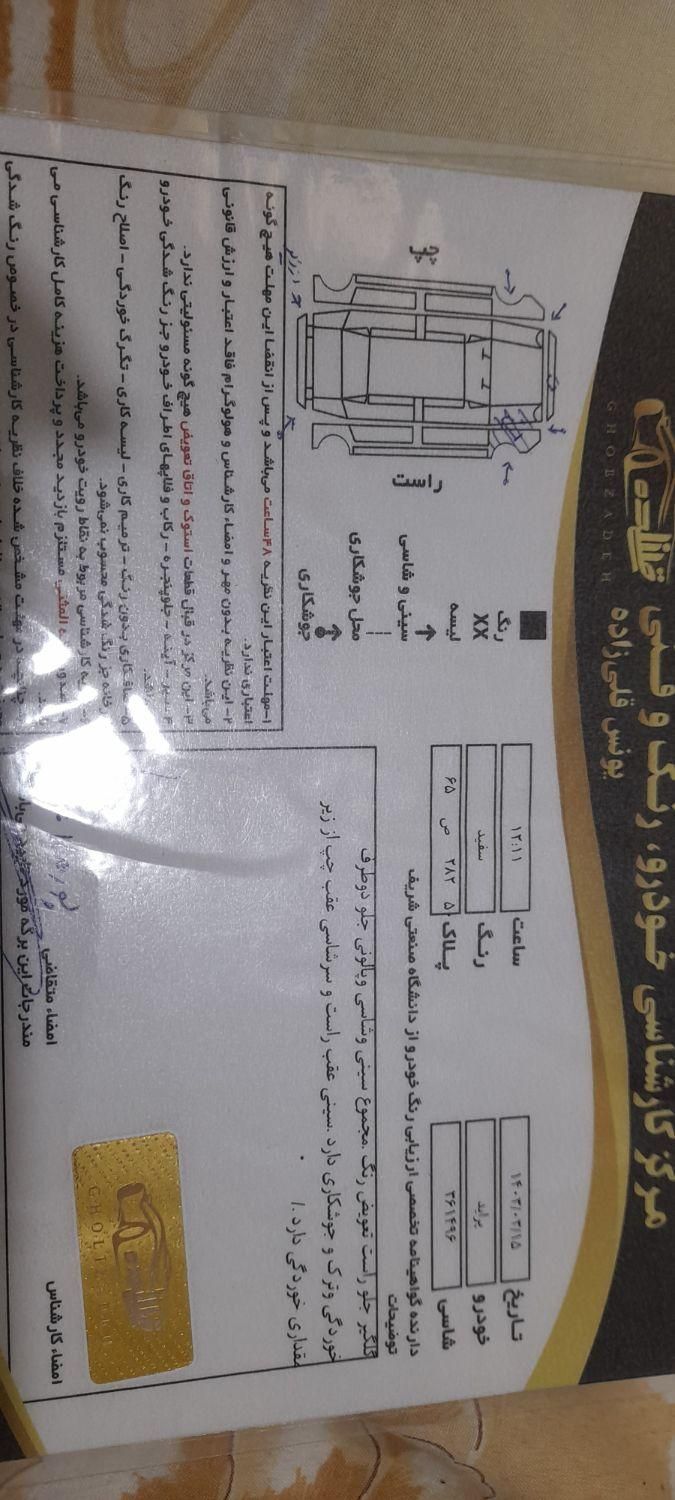 مرکز کارشناسی خودرو، رنگ و فنی قلی‌زاده
یونس قلی‌زاده
GHOLIZADEH
تاریخ ۱۴۰۳/۰۲/۱۵
ساعت ۱۲:۱۱
خودرو پراید
رنگ سفید
شاسی ۳۶۱۴۹۶
پلاک ۵ ۲۸۲ ص ۶۵
دارنده گواهینامه تخصصی ارزیابی رنگ خودرو از دانشگاه صنعتی شریف
توضیحات
گلگیر جلو راست تعویض رنگ .مجموع سینی وشاسی وپالونی جلو دوطرف
خوردگی وترک و جوشکاری دارد .سینی عقب راست و سرشاسی عقب چپ از زیر
مقداری خوردگی دارد ./
رنگ
XX لیسه
سینی و شاسی
محل جوشکاری
جوشکاری
راست
چپ
۱-مهلت اعتبار این نظریه ۴۸ساعت می‌باشد و پس از انقضا این مهلت هیچ گونه
اعتباری ندارد.
۲- این نظریه بدون مهر و امضاء کارشناس و هولوگرام فاقد اعتبار و ارزش قانونی
می‌باشد.
۳-این مرکز در قبال قطعات استوک و اتاق تعویض هیچ گونه مسئولیتی ندارد.
۴- سپر – آینه – جلوپنجره – رکاب و قابهای اطراف خودرو جز رنگ شدگی خودرو
۵- صافکاری بدون رنگ – ترمیم کاری – لیسه کاری – تگرگ خوردگی – اصلاح رنگ
خانه جز رنگ شدگی محسوب نمی‌شود.
کارشناسی مربوط به نقاط رویت خودرو می‌باشد.
المثنی مستلزم بازدید مجدد و پرداخت هزینه کامل کارشناسی می
در مهلت مشخص شده خلاف نظریه کارشناسی در خصوص رنگ شدگی
امضاء متقاضی
مندرجات این برگه مورد
امضاء کارشناس